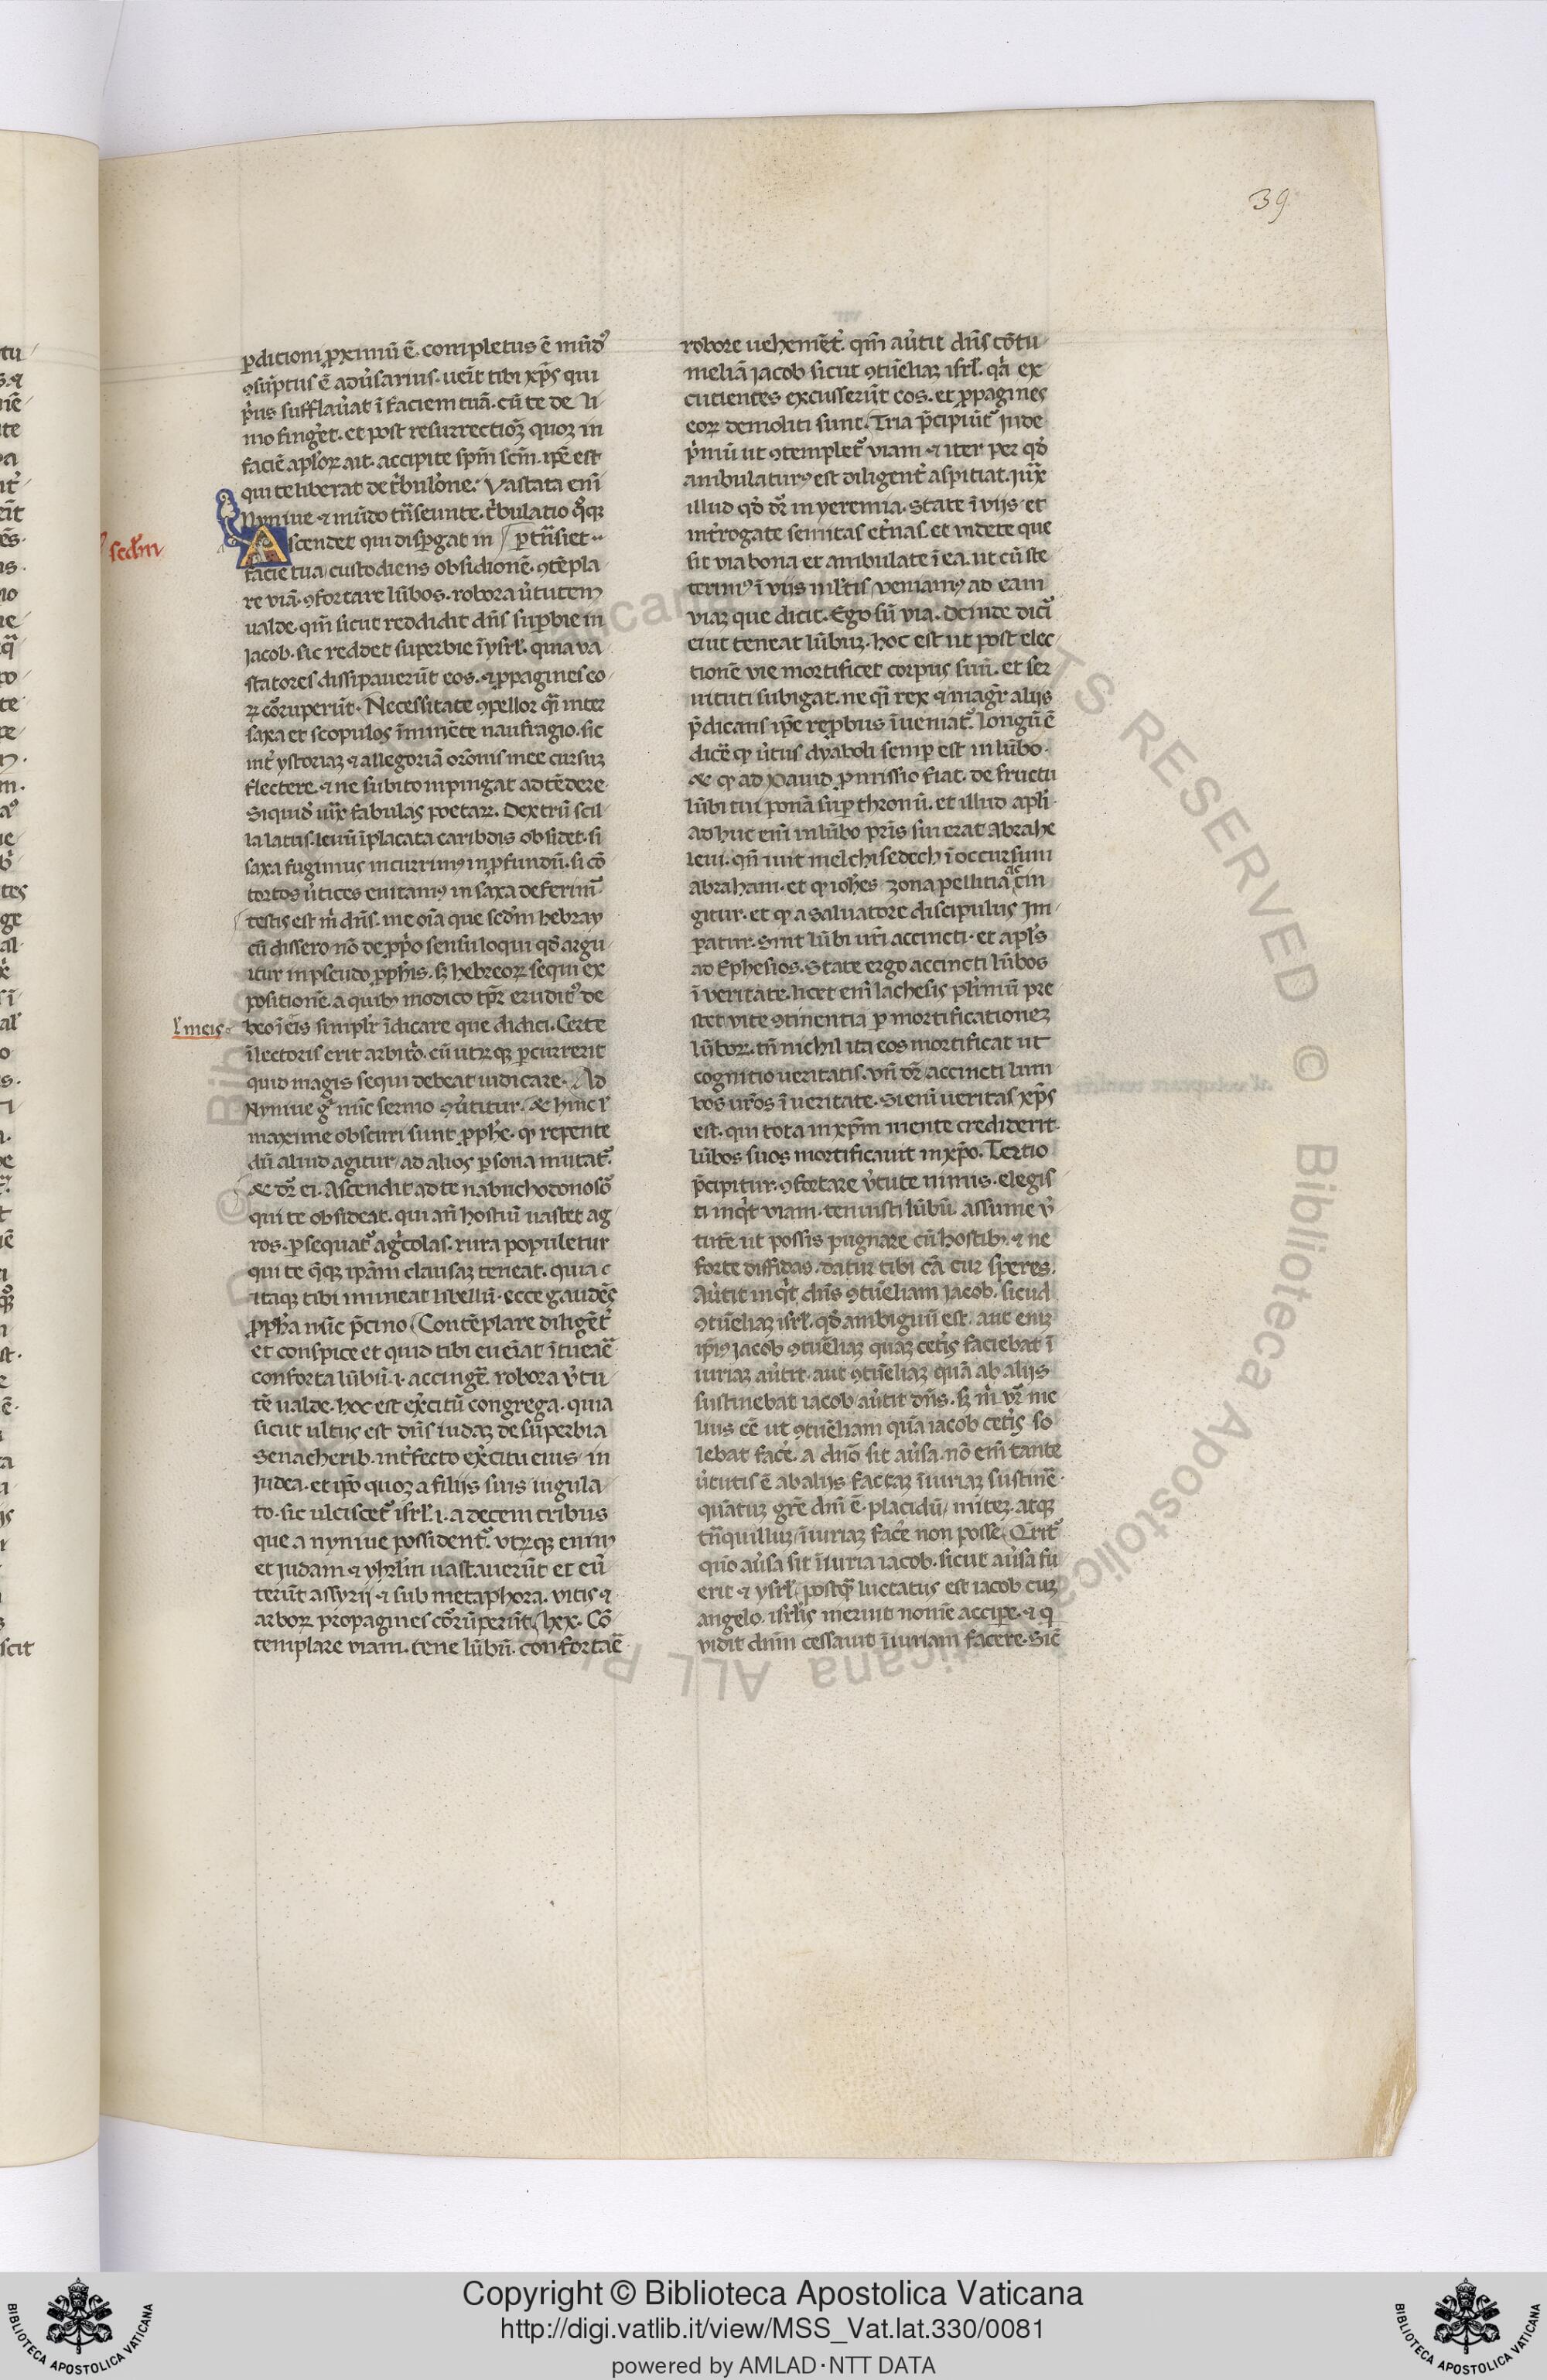 39
p̱dicioni ꝓximũ ẽ. completus ẽ mũdꝰ
ꝯsũptus ẽ adũsarius. ueĩt tibi xp̃s qui
p̃us sufflau̓at ĩ faciem tuã. cũ te de li
mo fing̓et. et post resurrectiõꝫ quoꝫ in
faciẽ apl̓oꝝ ait. accipite sp̃m sc̃m. ip̃e est
qui te liberat de t̓bulõne. Vastata eni̓
Nyniue ⁊ mũdo tñseunte. t̓bulatio qͦꝗꝫ
Ascendet qui disp̱gat in p̱tñsiet
sed̓m
facie tua custodiens obsidionẽ. ꝯtẽpla
re viã. ꝯfortare lũbos. robora u̓tutem
ualde. qm̃ sicut reddidit dñs sup̱bie in
Jacob. sic reddet superbie ĩ ysrl̓. quia va
statores dissipauerũt eos. ⁊ ꝓpagines eo
ꝝ cõruperũt. Necessitate ꝯpellor q̃i inter
saxa et scopulos ĩminẽte naufragio. sic
int̓ ystoriaꝫ ⁊ allegoriã or̃onis mee cursuꝫ
flectere. ⁊ ne subito inpingat adtẽdere
Siquid̓ iux̃ fabulas poetaꝝ. Dextrũ scil
la latus. leuũ ĩplacata caribdis obsidet. si
saxa fugimus incurrimꝰ in ꝓfundũ. si cõ
tortos u̓tices euitamꝰ in saxa deferim̃
testis est m̓ dñs. me oĩa que sed̓m hebray
cũ dissero nõ de ꝓp̓o sensu loqui qd̓ argu
itur in pseudo ꝓph̓is. sꝫ hebreoꝝ sequi ex
positionẽ. a quibꝰ modico tp̃r̃ eruditꝰ de
l̓ meis
beo ĩ eis simpl̓r ĩdicare que didici. Certe
ĩ lectoris erit arbit̓o. cũ utꝝqꝫ p̱currerit
quid magis sequi debeat iudicare. Ad
Nyniue g̊ nũc sermo ꝯu̓titur. & hinc l̓
maxime obscuri sunt ꝓph̓e. ꝙ repente
dũ aliud agitur ad alios p̱sona mutat᷑.
& dr̃ ei. Ascendit ad te nabuchodonosõ
qui te obsideat. qui añ hostiũ uastet ag
ros. p̱sequat᷑ ag̓colas. rura populetur
qui te q̃ꝗꝫ ip̃am clausaꝫ teneat. quia
itaqꝫ tibi imineat ĩsbellũ. ecce gaudẽs
ꝓph̓a nũc p̃cino Contẽplare diligẽt̓
et conspice et quid tibi eueĩat ĩtueãẽ
conforta lũbũ. i. accing̃e. robora u̓tu
tẽ ualde. hoc est ex̓citũ congrega. quia
sicut ultus est dñs iudaꝫ de sup̱bia
Senacherib. int̓fecto ex̓citu eius in
Judea. et ip̃o quoꝫ a filijs suis iugula
to. sic ulciscet᷑ isrl̓. i. a decem tribus
que a nyniue possident᷑. vtꝝqꝫ enim
et judam ⁊ yhrl̓m uastauerũt et eũ
terũt assyrij. ⁊ sub metaphora. vitis ⁊
arboꝝ propagines cõrũperũt. hex. Cõ
templare viam. tene lũbũ. confortãẽ
robore uehemẽt̓. qm̃ au̓tit dñs cõtu
meliã jacob sicut ꝯtũeliaꝫ isrl̓. q̓a ex
cutientes excusserũt eos. et ꝓpagines
eoꝝ demoliti sunt. Tria p̃cipiũt᷑ Jude
p̓mũ ut ꝯtemplet᷑ viam. ⁊ iter per qd̓
ambulaturꝰ est diligent̓ aspitiat. jux̃
illud qd̓ dr̃ in yeremia. State ĩ vijs et
int̓rogate semitas et̓nas. et videte que
sit via bona et ambulate ĩ ea. ut cũ ste
terimꝰ ĩ vijs ml̓tis veniamꝰ ad eam
viaꝫ que dicit. Ego sũ via. Deinde dici᷑
ei ut teneat lũbuꝫ. hoc est ut post elec
tionẽ vie mortificet corpus suũ. et ser
uituti subigat. ne q̃i rex ⁊ mag̃r alijs
p̃dicans ip̃e rep̓bus ĩueniat᷑. longũ ẽ
dicẽ ꝙ u̓tus dyaboli semp̱ est in lũbo.
& ꝙ ad Dauid ꝓmissio fiat. de fructu
lũbi tui ponã sup̱ thronũ. et illud apl̓i.
adhuc eni̓ in lũbo pr̃is sui erat Abrahe
leui. qñ iuit melchisedech ĩ occursum
abraham. et ꝙ ioh̃es zona pellitia accin
gitur. et ꝙ a saluatore discipulus Im
patur. Sint lũbi uri̓ accincti. et apl̓s
ad Ephesios. State ergo accincti lũbos
ĩ veritate. licet eni̓ lachesis pl̓imũ pre
stet vite ꝯtinentia p̱ mortificationeꝫ
lũboꝝ. tñ nichil ita eos mortificat ut
cognitio ueritatis. vñ dr̃ accincti lum
bos ur̃os ĩ ueritate. Si eni̓ ueritas xp̃s
est. qui tota in xp̃m mente crediderit
lũbos suos mortificauit in xp̃o. Tertio
p̃cipitur. ꝯfortare v̓tute nimis. elegis
ti inq̓t viam. tenuisti lũbũ. assume v̓
tutẽ ut possis pugnare cũ hostibꝰ. ⁊ ne
forte diffidas. datur tibi cã cur speres.
Au̓tit inq̓t dñs ꝯtũeliam jacob. sicud
ꝯtũeliaꝫ isrl̓. qd̓ ambiguũ est. aut eniꝫ
ip̃iꝰ jacob ꝯtũeliaꝫ quaꝫ cet̓is faciebat ĩ
iuriaꝫ au̓tit. aut ꝯtũeliaꝫ quã ab alijs
sustinebat iacob au̓tit dñs. sꝫ m̓ vr̃ me
lius eẽ ut ꝯtũeliam quã iacob cet̓is so
lebat fac̓e. a dño sit au̓sa. nõ eni̓ tante
u̓tutis ẽ ab alijs factaꝫ ĩiuriaꝫ sustinẽ.
quãtuꝫ gr̃e dñi ẽ. placidũ, miteꝫ. atqꝫ
tñquilluꝫ, ĩiuriaꝫ fac̓e non posse. Q̃rit᷑
quõ au̓sa sit ĩiuria iacob. sicut au̓sa fu
erit ⁊ ysrl̓. postq̃ luctatus est iacob cuꝫ
angelo. isrl̓is meruit nomẽ accipe. ⁊ q̓
vidit dñm cessauit ĩiuriam facere. Sic̃
Copyright © Biblioteca Apostolica Vaticana
http://digi.vatlib.it/view/MSS_Vat.lat.330/0081
powered by AMLAD·NTT DATA